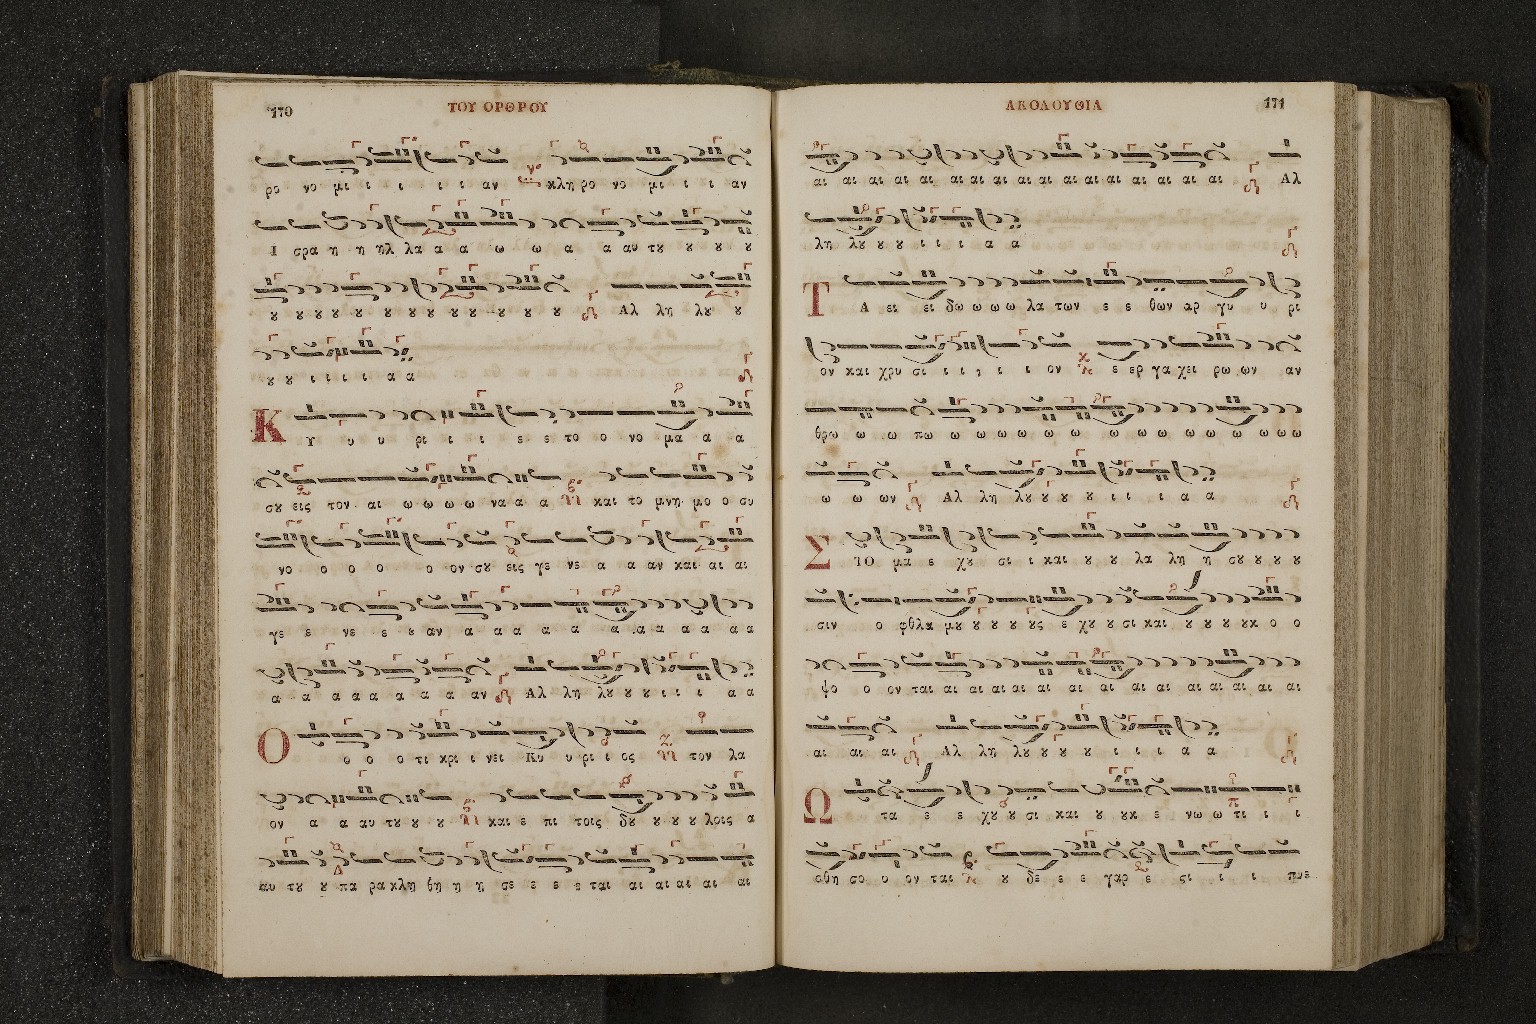 170
ΤΟΥ ΟΡΘΡΟΥ
ρο νο μι ι ι ι ι αν κλη ρο νο μι ι ι αν
Ι σρα η η ηλ λα α α ω ω α α αυ τȣ ȣ ȣ ȣ
ȣ ȣ ȣ ȣ ȣ ȣ ȣ ȣ ȣ ȣ ȣ ȣ ȣ Αλ λη λȣ ȣ
ȣ ȣ ι ι ι ι α α
Κ Υ υ υ ρι ι ι ε ε το ο νο μα α α
σȣ εις τον αι ω ω ω ω να α α και το μνη μο ο συ
νο ο ο ο ο ον σȣ εις γε νε α α αν και αι αι
γε ε νε ε ȣ αν α α α α α α α α α α α
α α α α α α α α αν Αλ λη λȣ ȣ ȣ ι ι ι α α
Ο ο ο ο τι κρι ι νει Κυ υ ρι ι ος τον λα
ον α α αυ τȣ ȣ ȣ και ε πι τοις δȣ ȣ ȣ ȣ λοις α
αυ τȣ ȣ πα ρα κλη θη η η σε ε ε ε ται αι αι αι αι αι
ΑΚΟΛΟΥΘΙΑ
171
αι αι αι αι αι αι αι αι αι αι αι αι αι αι αι αι Αλ
λη λȣ ȣ ȣ ι ι ι α α
Τ Α ει ει δω ω ω ω λα των ε ε θων αρ γυ υ ρι
ον και χρυ σι ι ι ι ι ι ον ε ερ γα χει ρω ων αν
θρω ω ω πω ω ω ω ω ω ω ω ω ω ω ω ω ω ω ω
ω ω ων Αλ λη λȣ ȣ ȣ ȣ ι ι ι α α
Σ ΤΟ μα ε χȣ σι ι και ȣ ȣ λα λη η σȣ ȣ ȣ ȣ
σιν ο φθλα μȣ ȣ ȣ ȣ ȣς ε χȣ ȣ σι και ȣ ȣ ȣ ȣκ ο ο
ψο ο ον ται αι αι αι αι αι αι αι αι αι αι αι αι αι αι
αι αι αι Αλ λη λȣ ȣ ȣ ȣ ι ι ι α α
Ω τα ε ε χȣ ȣ σι και ȣ ȣκ ε νω ω τι ι ι
σθη σο ο ον ται ȣ δε ε ε γαρ ε ςι ι ι πνε